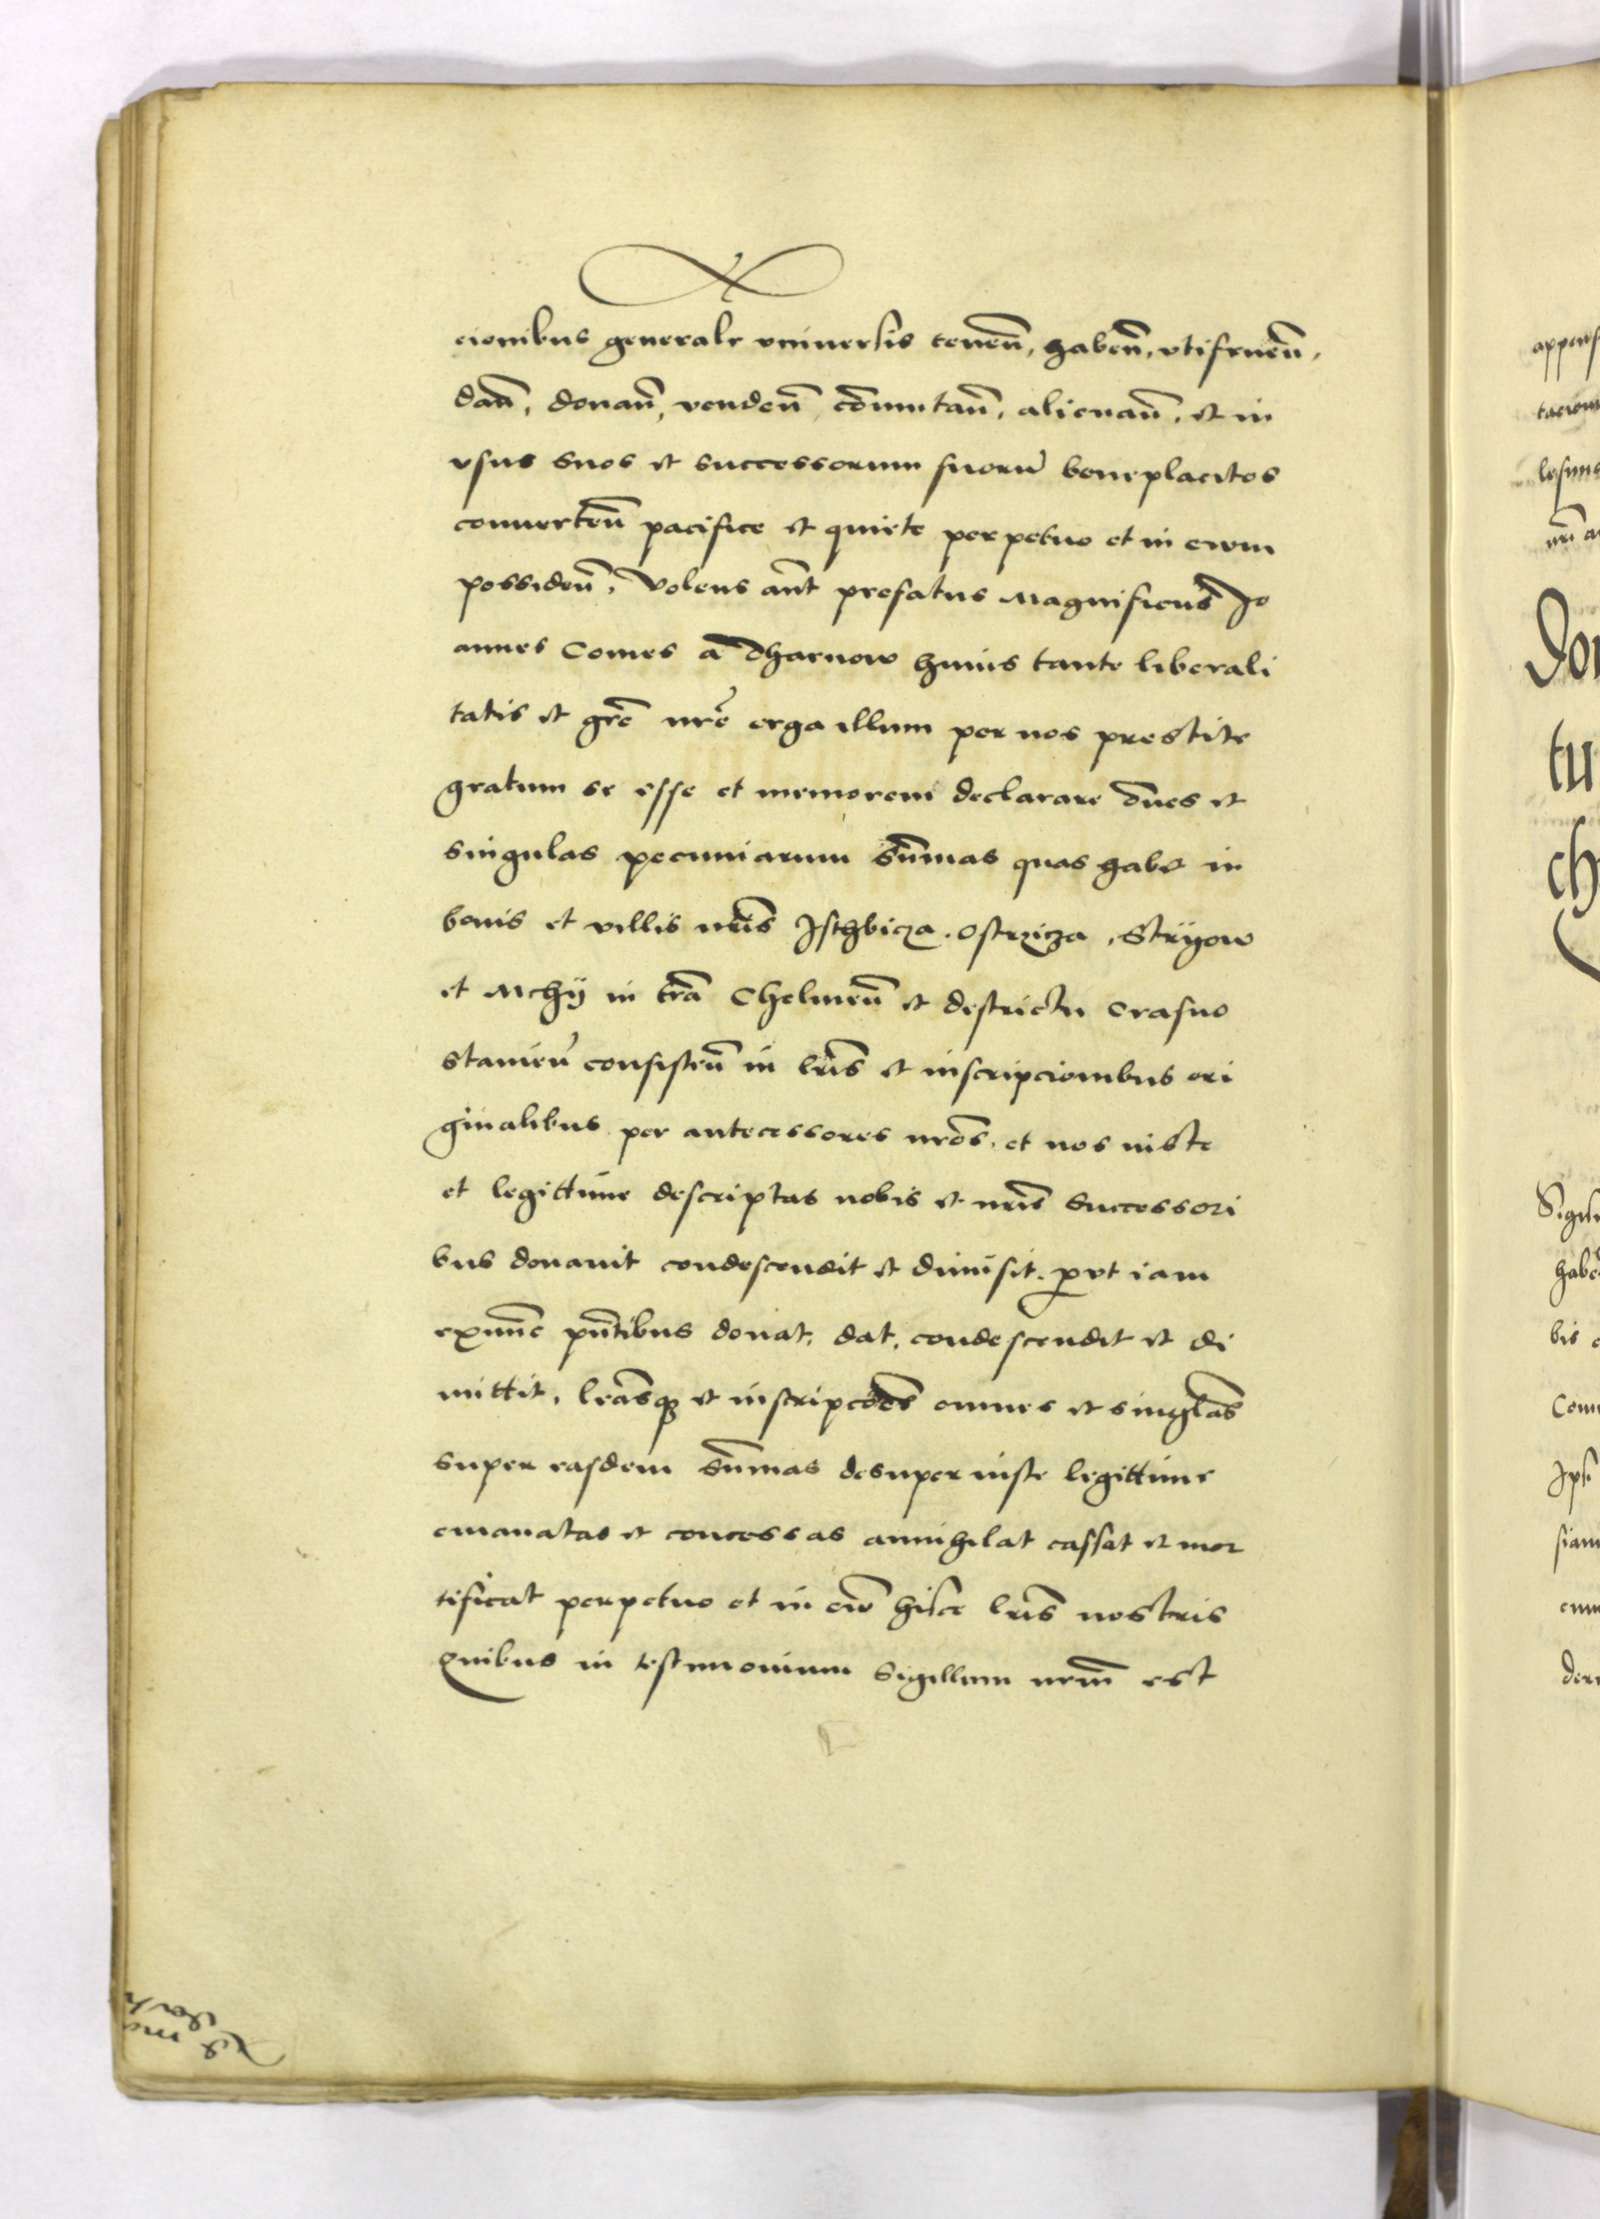 cionibus generalr vniuersis tenen̄, haben̄, vtifruen̄,
dan̄, donan̄, venden̄, com̄utan̄, alienan̄, et in
vsus suos et successorum suorū beneplacitos
conuerten̄ pacifice et quiete perpetuo et in ewm
possiden̄, Volens aūt prefatus Magnificus Jo
annes Comes a Tharnow huius tante liberali
tatis et gr̄e nr̄e erga illum per nos prestite
gratum se esse et memorem declarare om̄es et
singulas pecuniarum sum̄as quas habet in
bonis et villis nr̄is Jsthbicza . Ostrzicza . Stryow
et Mchy in tr̄a Chelmen̄ et districtu Crasno
stauien̄ consisten̄ in lr̄is et inscripcionibus ori
ginalibus per antecessores nr̄os . et nos iuste
et legittime descriptas nobis et nr̄is Successori
bus donauit condescendit et dimisit . prvt iam
exnunc pn̄tibus donat, dat, condescendit et di
mittit, lr̄asq et inscripco̅es omnes et singl̄as
super easdem sum̄as desuper iuste legittime
emanatas et concessas annihilat cassat et mor
tificat perpetuo et in ew̄ hisce lr̄is nostris
Quibus in testimonium Sigillum nrm̄ est